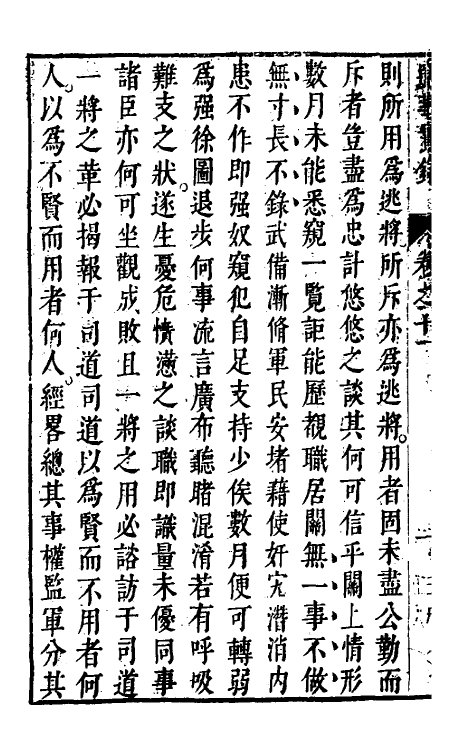 則所用爲逃將所斥亦爲逃將用者固未盡公勤而
斥者豈盡爲忠計悠悠之談其何可信乎關上情形
數月未能悉窺一覽詎能歷覩職居關無一事不做
無寸長不錄武備漸脩軍民安堵藉使奸宄潛消內
患不作即强奴窺犯自足支持少俟數月便可轉弱
爲强徐圖退步何事流言廣布聽睹混淆若有呼吸
難支之狀遂生憂危憤懣之談職即識量未優同事
諸臣亦何可坐觀成敗且一將之用必諮訪于司道
一將之革必揭報于司道司道以爲賢而不用者何
人以爲不賢而用者何人經畧總其事權監軍分其